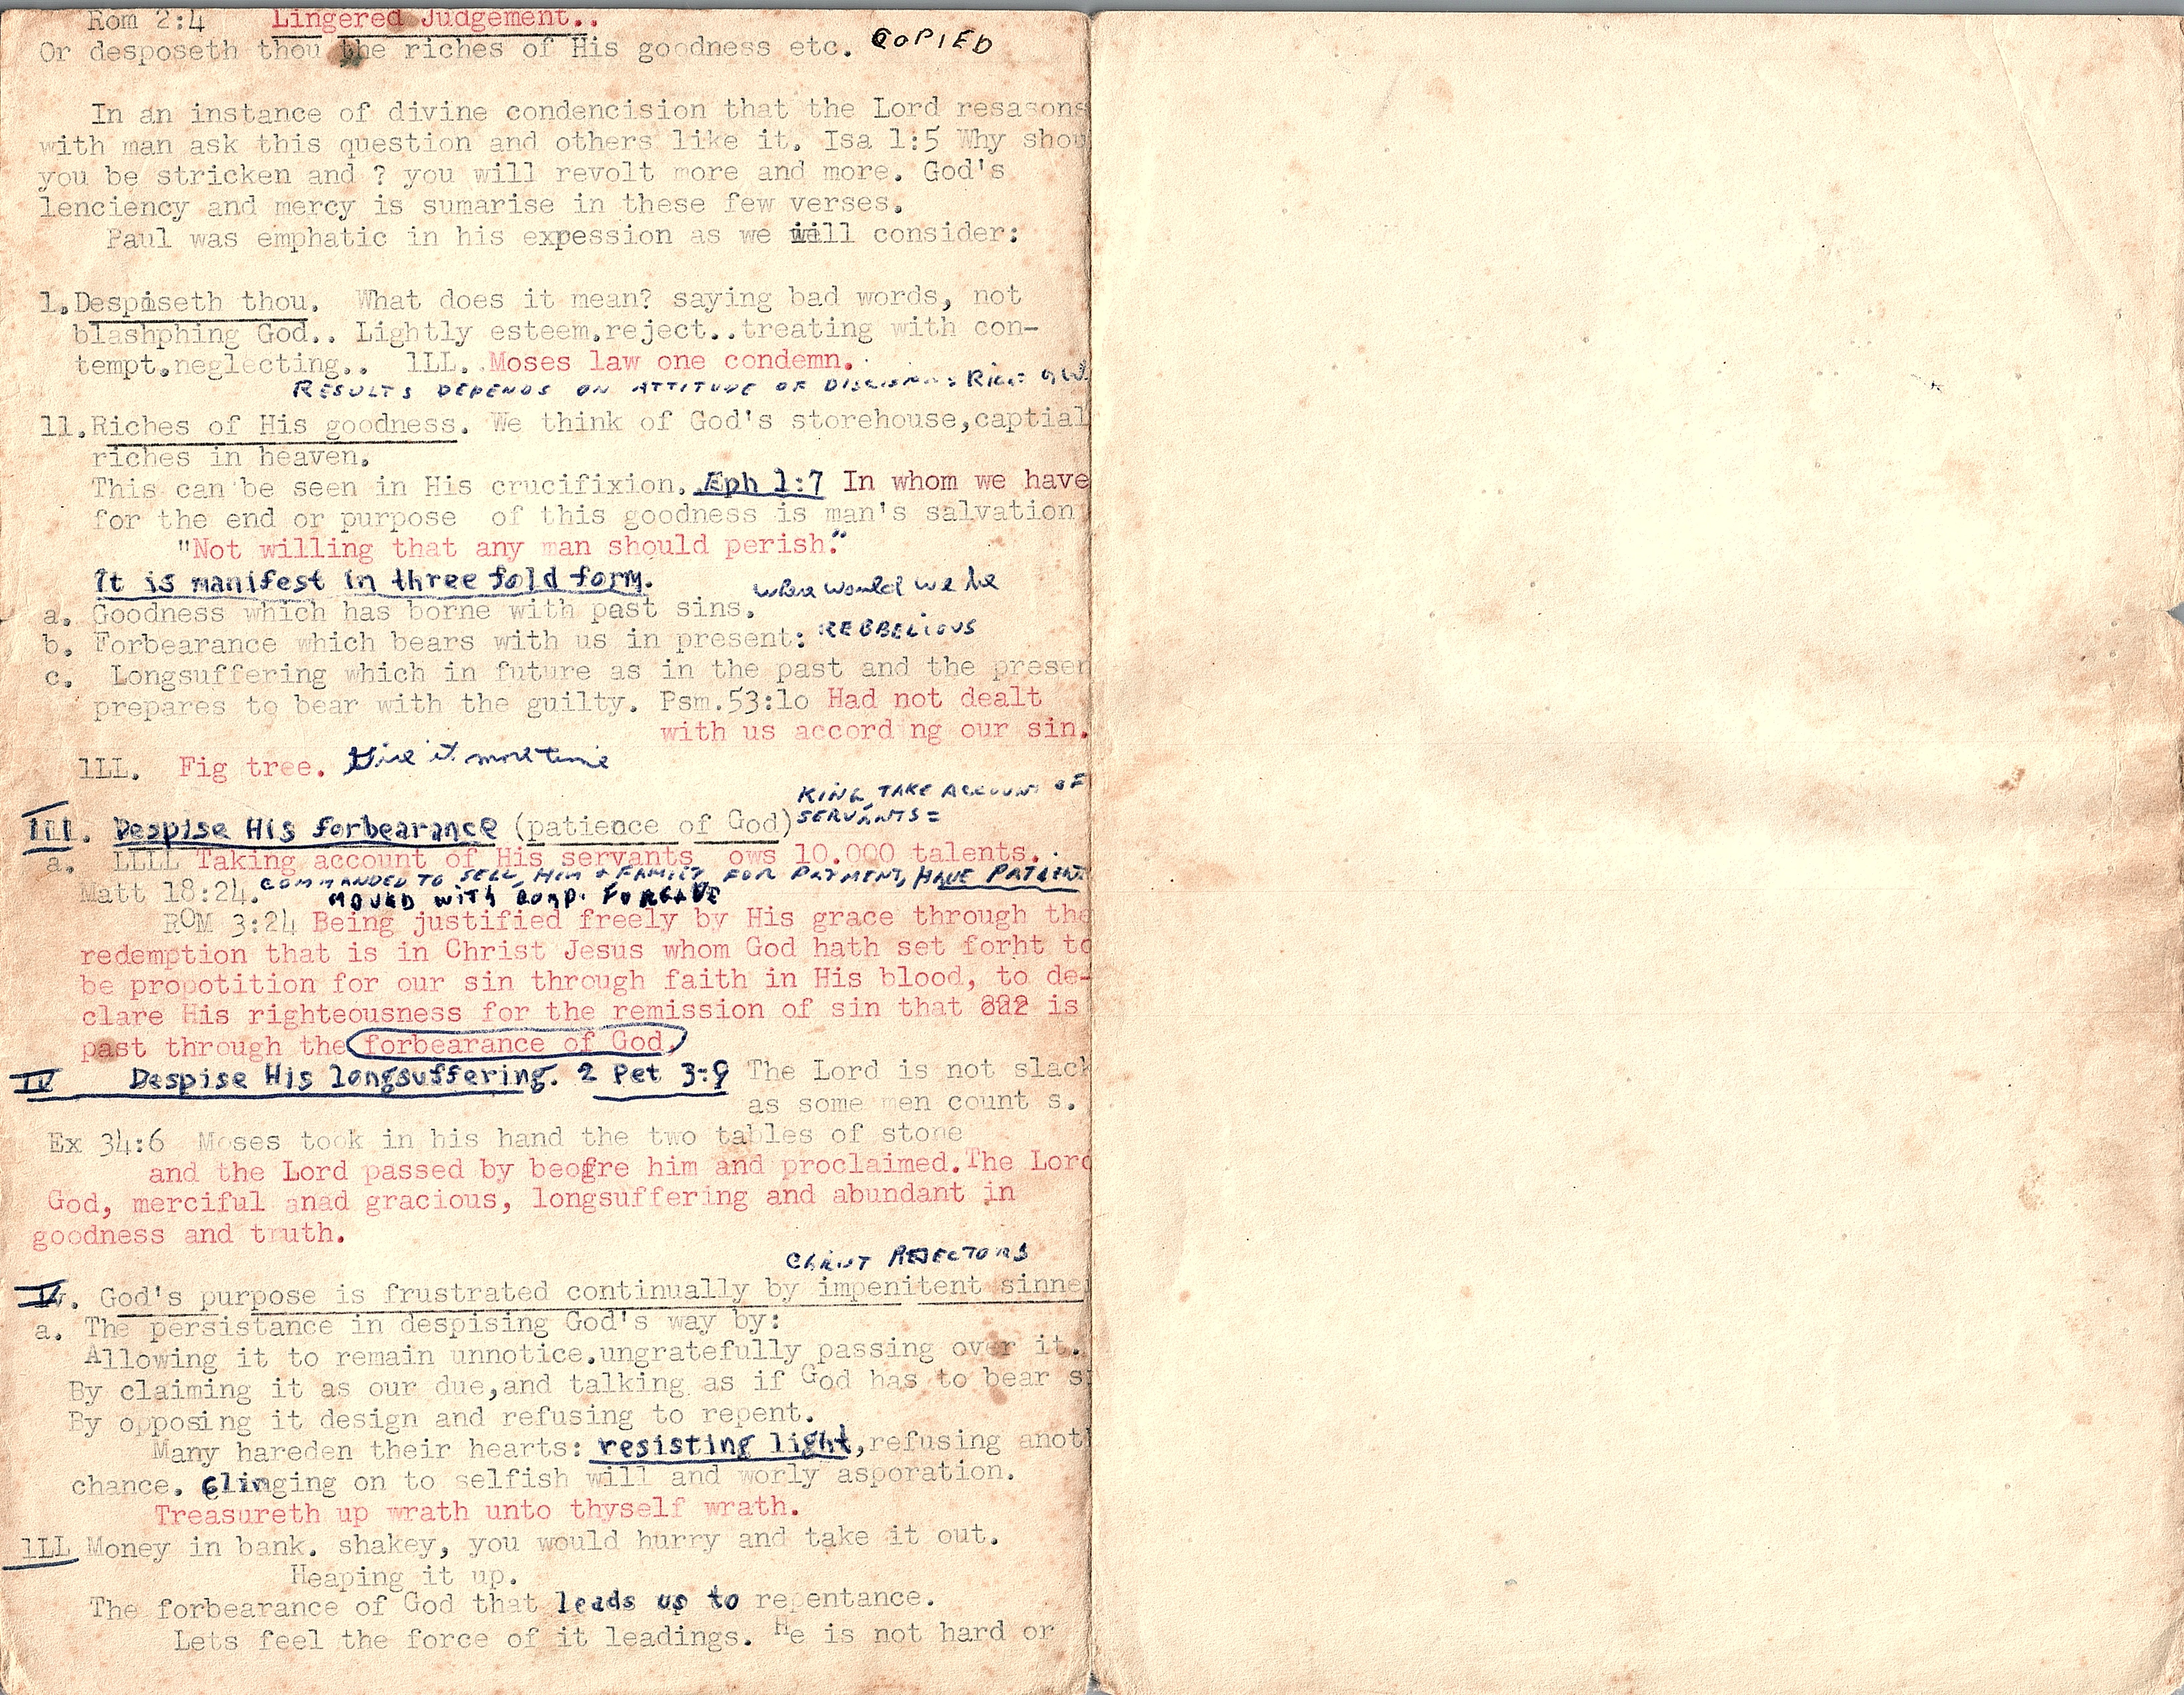 Rom 2:4 Lingered Judgement..
Or desposeth thou the riches of His goodness etc. COPIED
In an instance of divine condencision that the Lord resasons
with man ask this question and others like it. Isa 1:5 Why shou
you be stricken and ? you will revolt more and more. God's
lenciency and mercy is sumarise in these few verses.
Paul was emphatic in his expession as we will consider:
l.Despiseth thou. What does it mean? saying bad words, not
blashphing God.. Lightly esteem,reject..treating with con-
tempt,neglecting.. lLL. Moses law one condemn.
RESULTS DEPENDS ON ATTITUDE OF
ll.Riches of His goodness. We think of God's storehouse,captial
riches in heaven.
This can be seen in His crucifixion. Eph 1:7 In whom we have
for the end or purpose of this goodness is man's salvation
"Not willing that any man should perish."
It is manifest in three fold form. where would we be
a. Goodness which has borne with past sins.
b. Forbearance which bears with us in present: REBBELIOUS
c. Longsuffering which in future as in the past and the presen
prepares to bear with the guilty. Psm.53:lo Had not dealt
with us accord ng our sin.
lLL. Fig tree. Give it more time
KING TAKE ACCOUNT OF
SERVANTS =
III. Despise His forbearance (patience of God)
a. LLLL Taking account of His servants ows 10.000 talents.
COMMANDED TO SELL HIM & FAMILY FOR PAYMENT, HAVE PATIENT
Matt 18:24. MOVED WITH COMP. FORGAVE
ROM 3:24 Being justified freely by His grace through the
redemption that is in Christ Jesus whom God hath set forht to
be propotition for our sin through faith in His blood, to de-
clare His righteousness for the remission of sin that is
past through the forbearance of God.
IV Despise His longsuffering. 2 Pet 3:9 The Lord is not slack
as some men count s.
Ex 34:6 Moses took in his hand the two tables of stone
and the Lord passed by beofre him and proclaimed.The Lord
God, merciful anad gracious, longsuffering and abundant in
goodness and truth.
CHRIST REJECTORS
V. God's purpose is frustrated continually by impenitent sinne
a. The persistance in despising God's way by:
Allowing it to remain unnotice.ungratefully passing over it.
By claiming it as our due,and talking as if God has to bear s
By opposing it design and refusing to repent.
Many hareden their hearts: resisting light,refusing anoth
chance. Clinging on to selfish will and worly asporation.
Treasureth up wrath unto thyself wrath.
lLL Money in bank. shakey, you would hurry and take it out.
Heaping it up.
The forbearance of God that leads us to repentance.
Lets feel the force of it leadings. He is not hard or